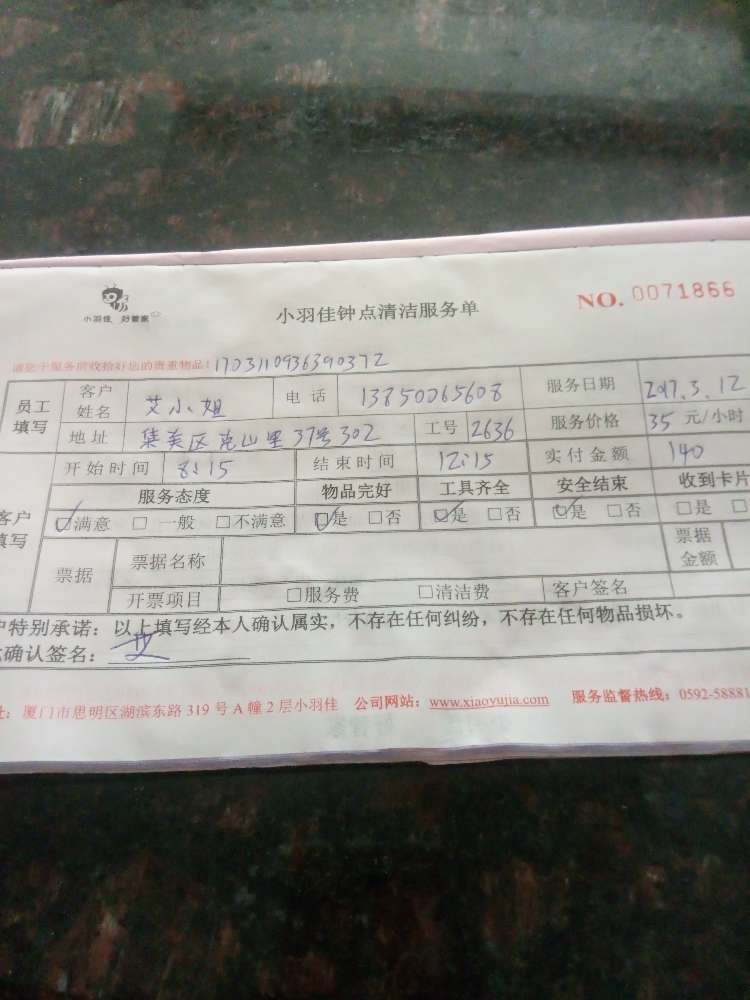 小羽佳 好管家
小羽佳钟点清洁服务单
NO. 0071866
请您于服务前收拾好您的贵重物品! 1703110936390372
员工填写 客户姓名 艾小姐 电话 13850065608 服务日期 2017.3.12
地址 集美区 山里37号302 工号 2636 服务价格 35 元/小时
客户填写 开始时间 8:15 结束时间 12:15 实付金额 140
服务态度 物品完好 工具齐全 安全结束 收到卡片
☑满意 □一般 □不满意 ☑是 □否 ☑是 □否 ☑是 □否 □是 □
票据 票据名称 票据金额
开票项目 □服务费 □清洁费 客户签名
户特别承诺：以上填写经本人确认属实，不存在任何纠纷，不存在任何物品损坏。
确认签名： 艾
址：厦门市思明区湖滨东路 319 号 A 幢 2 层小羽佳 公司网站：www.xiaoyujia.com 服务监督热线：0592-58881